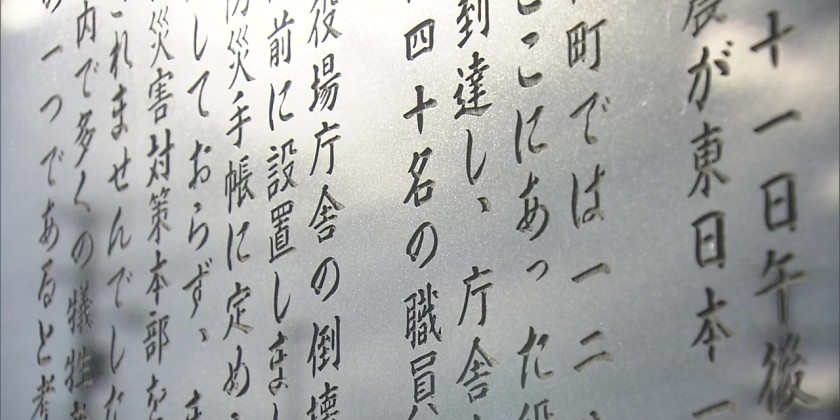 十一日午後
震が東日本一
町では一二
ここにあった
到達し、庁舎
四十名の職員
役場庁舎の倒壊
前に設置しまし
防災手帳に定め
しておらず、ま
災害対策本部
これませんでした
内で多くの犠牲
の一つであると考